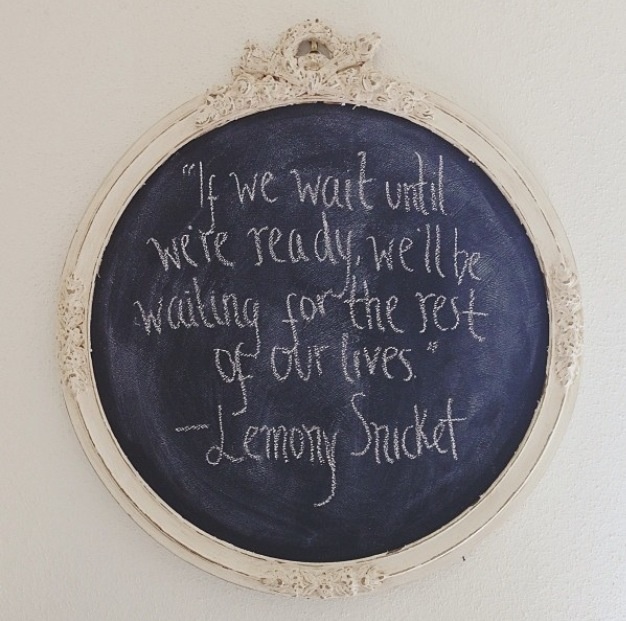 "If we wait until
we're ready, we'll be
waiting for the rest
of our lives."
—Lemony Snicket